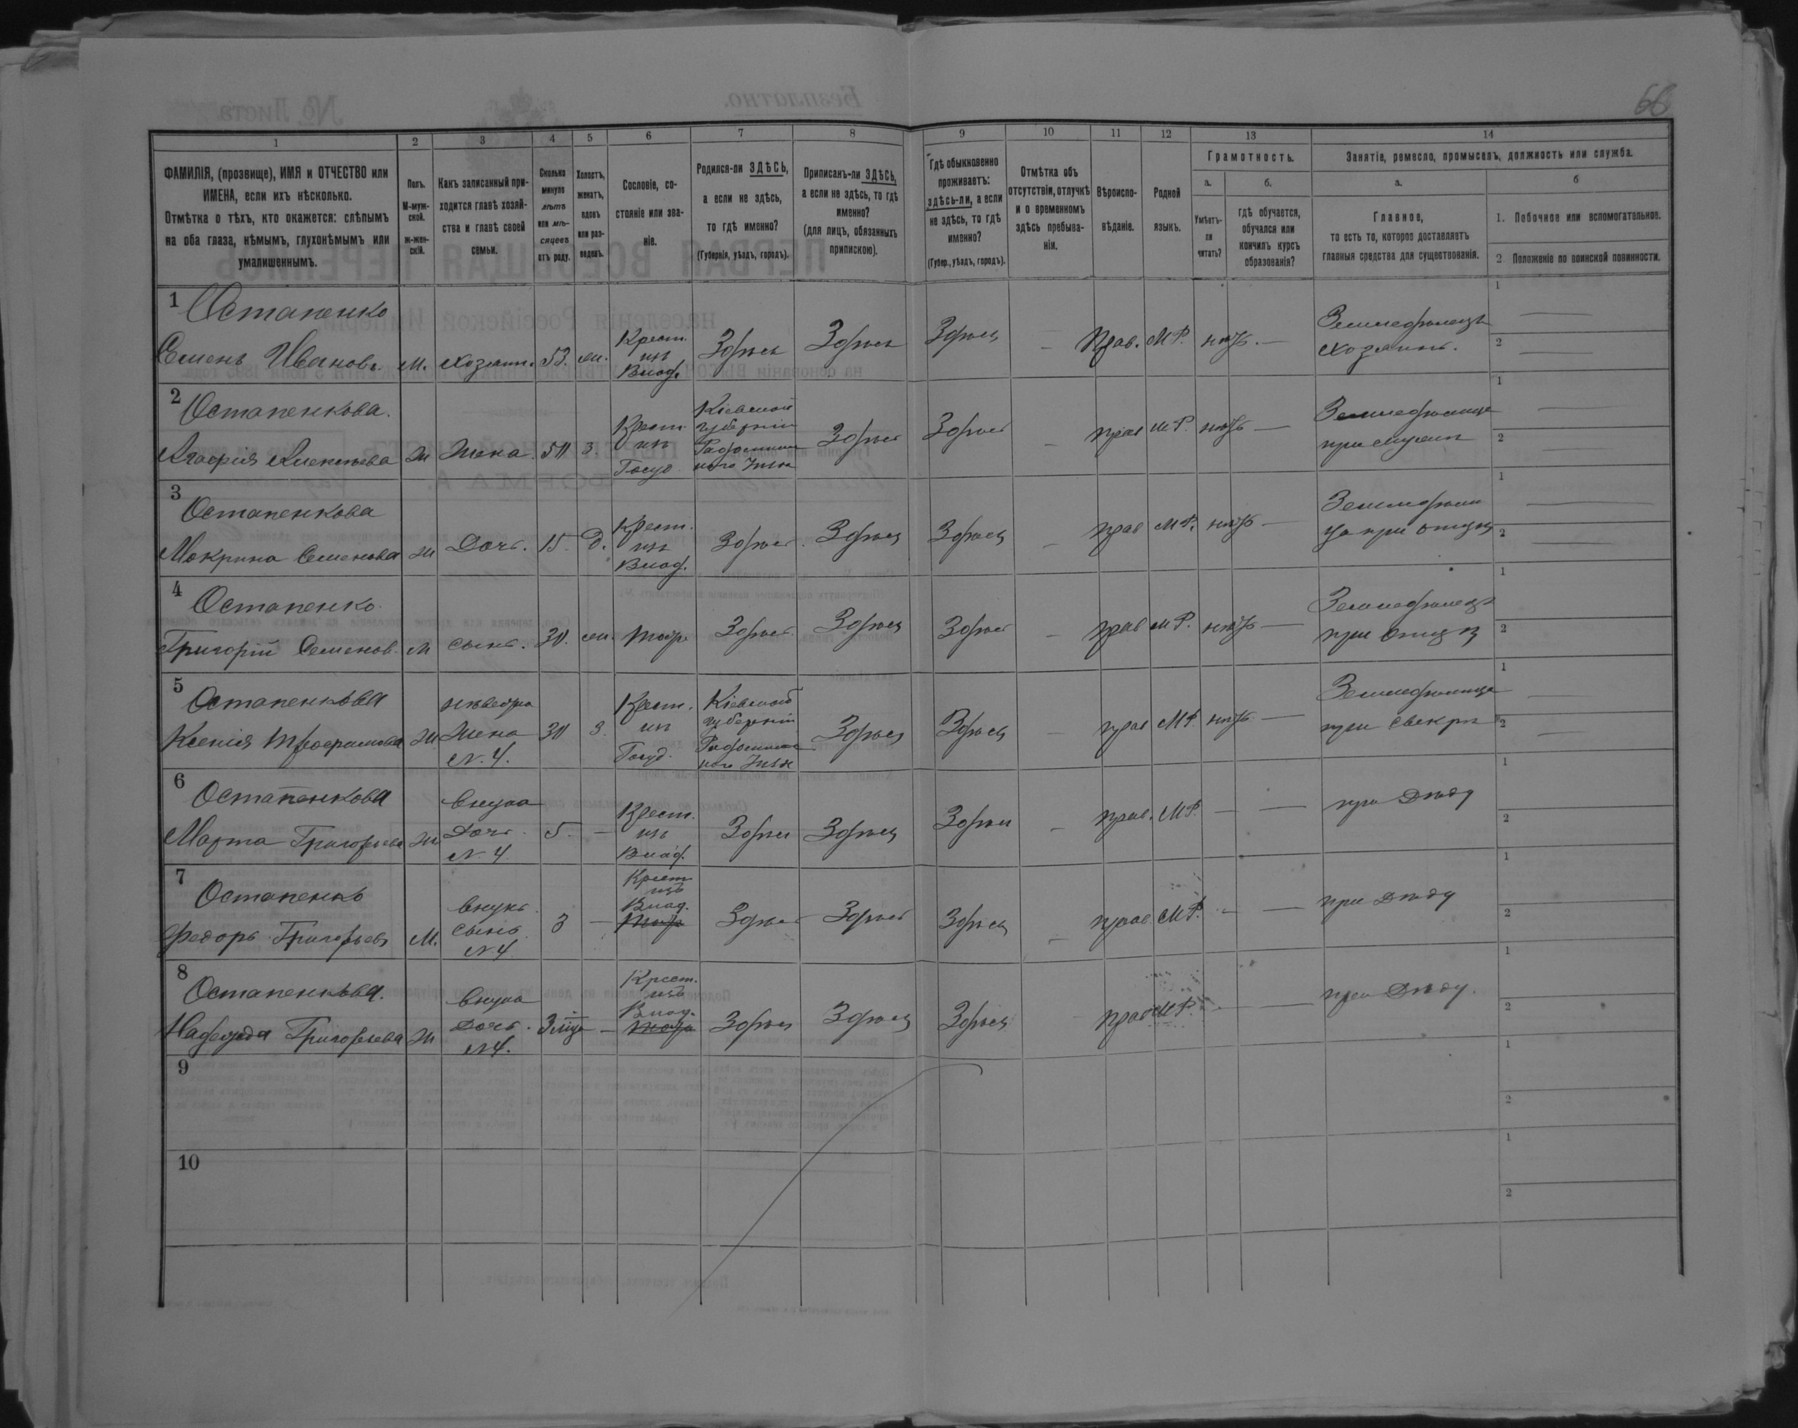 66
1 2 3 4 5 6 7 8 9 10 11 12 13 14
ФАМИЛІЯ, (прозвище), ИМЯ и ОТЧЕСТВО или
ИМЕНА, если ихъ нѣсколько.
Отмѣтка о тѣхъ, кто окажется: слѣпымъ
на оба глаза, нѣмымъ, глухонѣмымъ или
умалишеннымъ.
Полъ.
М-муж-
ской.
ж-жен-
скій.
Какъ записанный при-
ходится главѣ хозяй-
ства и главѣ своей
семьи.
Сколько
минуло
лѣтъ
или мѣ-
сяцевъ
отъ роду.
Холостъ,
женатъ,
вдовъ
или раз-
веденъ.
Сословіе, со-
стояніе или зва-
ніе.
Родился-ли ЗДѢСЬ,
а если не здѣсь,
то гдѣ именно?
(Губернія, уѣздъ, городъ).
Приписанъ-ли ЗДѢСЬ,
а если не здѣсь, то гдѣ
именно?
(для лицъ, обязанныхъ
припискою).
Гдѣ обыкновенно
проживаетъ:
здѣсь-ли, а если
не здѣсь, то гдѣ
именно?
(Губер., уѣздъ, городъ).
Отмѣтка объ
отсутствіи, отлучкѣ
и о временномъ
здѣсь пребыва-
ніи.
Вѣроиспо-
вѣданіе.
Родной
языкъ.
Грамотность.
а.
Умѣетъ-
ли
читать?
б.
гдѣ обучается,
обучался или
кончилъ курсъ
образованія?
Занятіе, ремесло, промыселъ, должность или служба.
а.
Главное,
то есть то, которое доставляетъ
главныя средства для существованія.
б
1. Побочное или вспомогательное.
2 Положеніе по воинской повинности.
1 Остапенко
Семенъ Ивановъ м. хозяин. 53. жи. Крест. изъ Влад. Здѣсь Здѣсь Здѣсь — Прав. МР. нѣтъ — Земледѣлецъ хозяинъ. 1 — 2 —
2 Остапенкова.
Агафия ж Жена. 50 з. Крест изъ Госуд Кіевской губерніи Здѣсь Здѣсь — прав МР. нѣтъ — Земледѣлица при мужѣ 1 — 2 —
3 Остапенкова
Мокрина Семенова ж Дочь. 15. д. Крест. изъ Влад. Здѣсь Здѣсь Здѣсь — прав МР. нѣтъ — при отцѣ 1 — 2 —
4 Остапенко
Григорій Семенов. м сынъ. 30. же. тоже Здѣсь Здѣсь Здѣсь — прав МР. нѣтъ — Земледѣлецъ при отцѣ 1 2
5 Остапенкова
Ксенія ж невѣстка Жена №. 4. 30 з. Крест. изъ Госуд. Кіевской губерніи Здѣсь Здѣсь — прав МР нѣтъ — Земледѣлица при свекрѣ 1 — 2 —
6 Остапенкова
Марта Григорьева ж внука Дочь. № 4 5. — Крест. изъ Влад. Здѣсь Здѣсь Здѣсь — прав. МР. — — при Дѣду 1 2
7 Остапенко
Федоръ Григорьев м. внукъ сынъ № 4 3 — Крест изъ Влад. тоже Здѣсь Здѣсь Здѣсь — прав МР. — — при Дѣду 1 2
8 Остапенкова.
Надежда Григорьева ж внука Дочь. №4. 3 мѣс — Крест. изъ Влад. тоже Здѣсь Здѣсь Здѣсь прав МР. — при Дѣду. 1 2
9 1 2
10 1 2